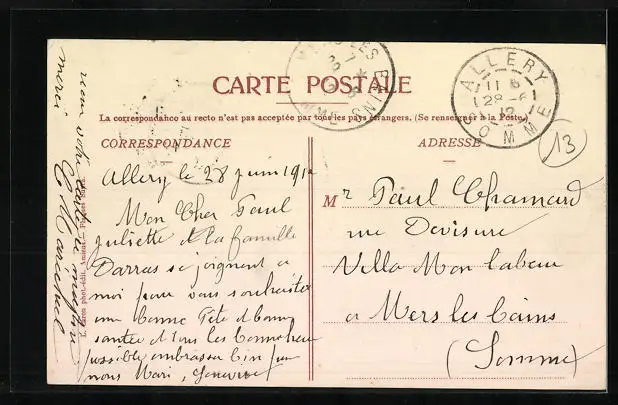 CARTE POSTALE
La correspondance au recto n'est pas acceptée par tous les pays étrangers. (Se renseigner à la Poste.)
CORRESPONDANCE
ADRESSE
Allery le 28 juin 1912
Mon Cher Paul
Juliette et la famille
Darras se joignent a
moi pour vous souhaiter
une bonne fête et bonne
santée et tous les bonheurs
possible embrasser bien pour
nous Mari, Geneviève
Mr Paul Chamard
rue Devisme
Villa Mon labeur
a Mers les bains
(Somme)
ALLERY
11 5
28 -6
12
SOMME
LES BAINS
SOMME
13
merci
G Marechal